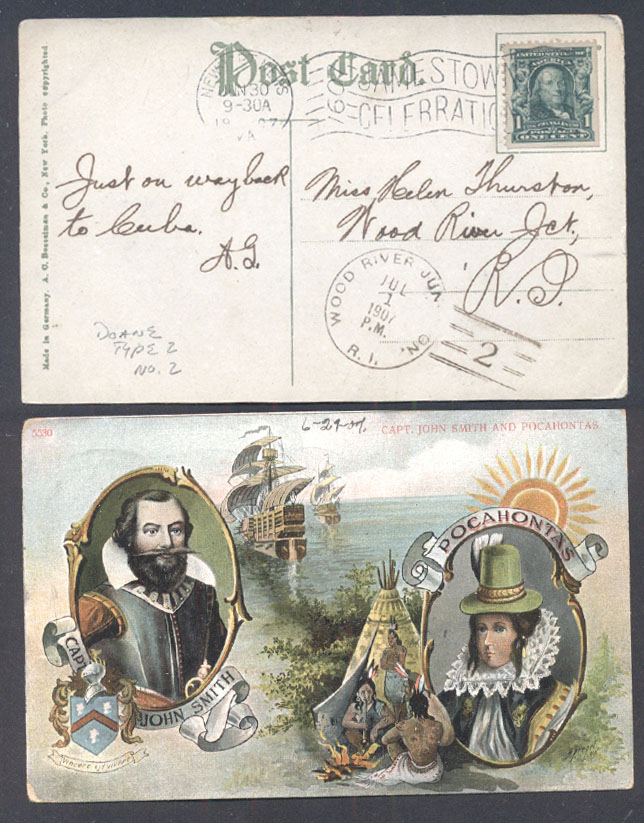 Post Card.
Made in Germany. A. C. Bosselman & Co., New York. Photo copyrighted.
NEW
JUN 30
9-30A
1907
VA
1607
JAMESTOWN
CELEBRATION
AMERICA
1
POSTAGE
ONE CENT
Just on way back
to Cuba.
A.G.
Miss Helen Thurston,
Wood River Jct,
R.I.
WOOD RIVER JUN
JUL
1
1907
P.M.
R.I.
2
DOANE
TYPE 2
NO. 2
5530
6-29-07.
CAPT. JOHN SMITH AND POCAHONTAS.
CAPT.
JOHN SMITH
POCAHONTAS